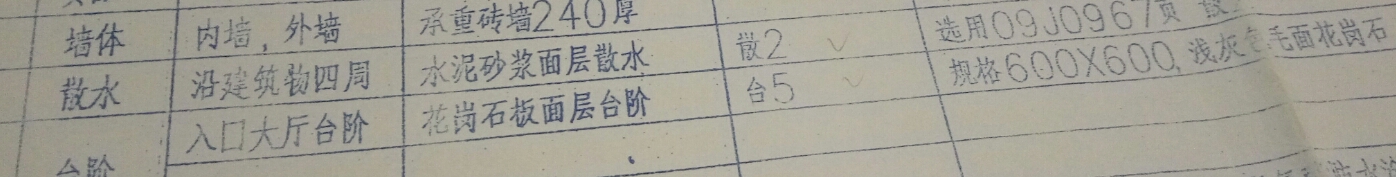 墙体 内墙，外墙 承重砖墙240厚
散水 沿建筑物四周 水泥砂浆面层散水 散2 选用09J0967页
台阶 入口大厅台阶 花岗石板面层台阶 台5 规格600X600，浅灰色毛面花岗石